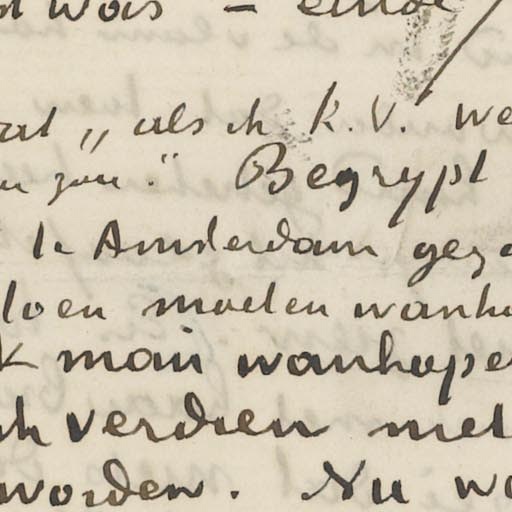 was — einde
at „ als ik K.V. we
zou." Begrypt
te Amsterdam gega
doen moeten wanho
k maar wanhope
ik verdien met
worden. Nu wa